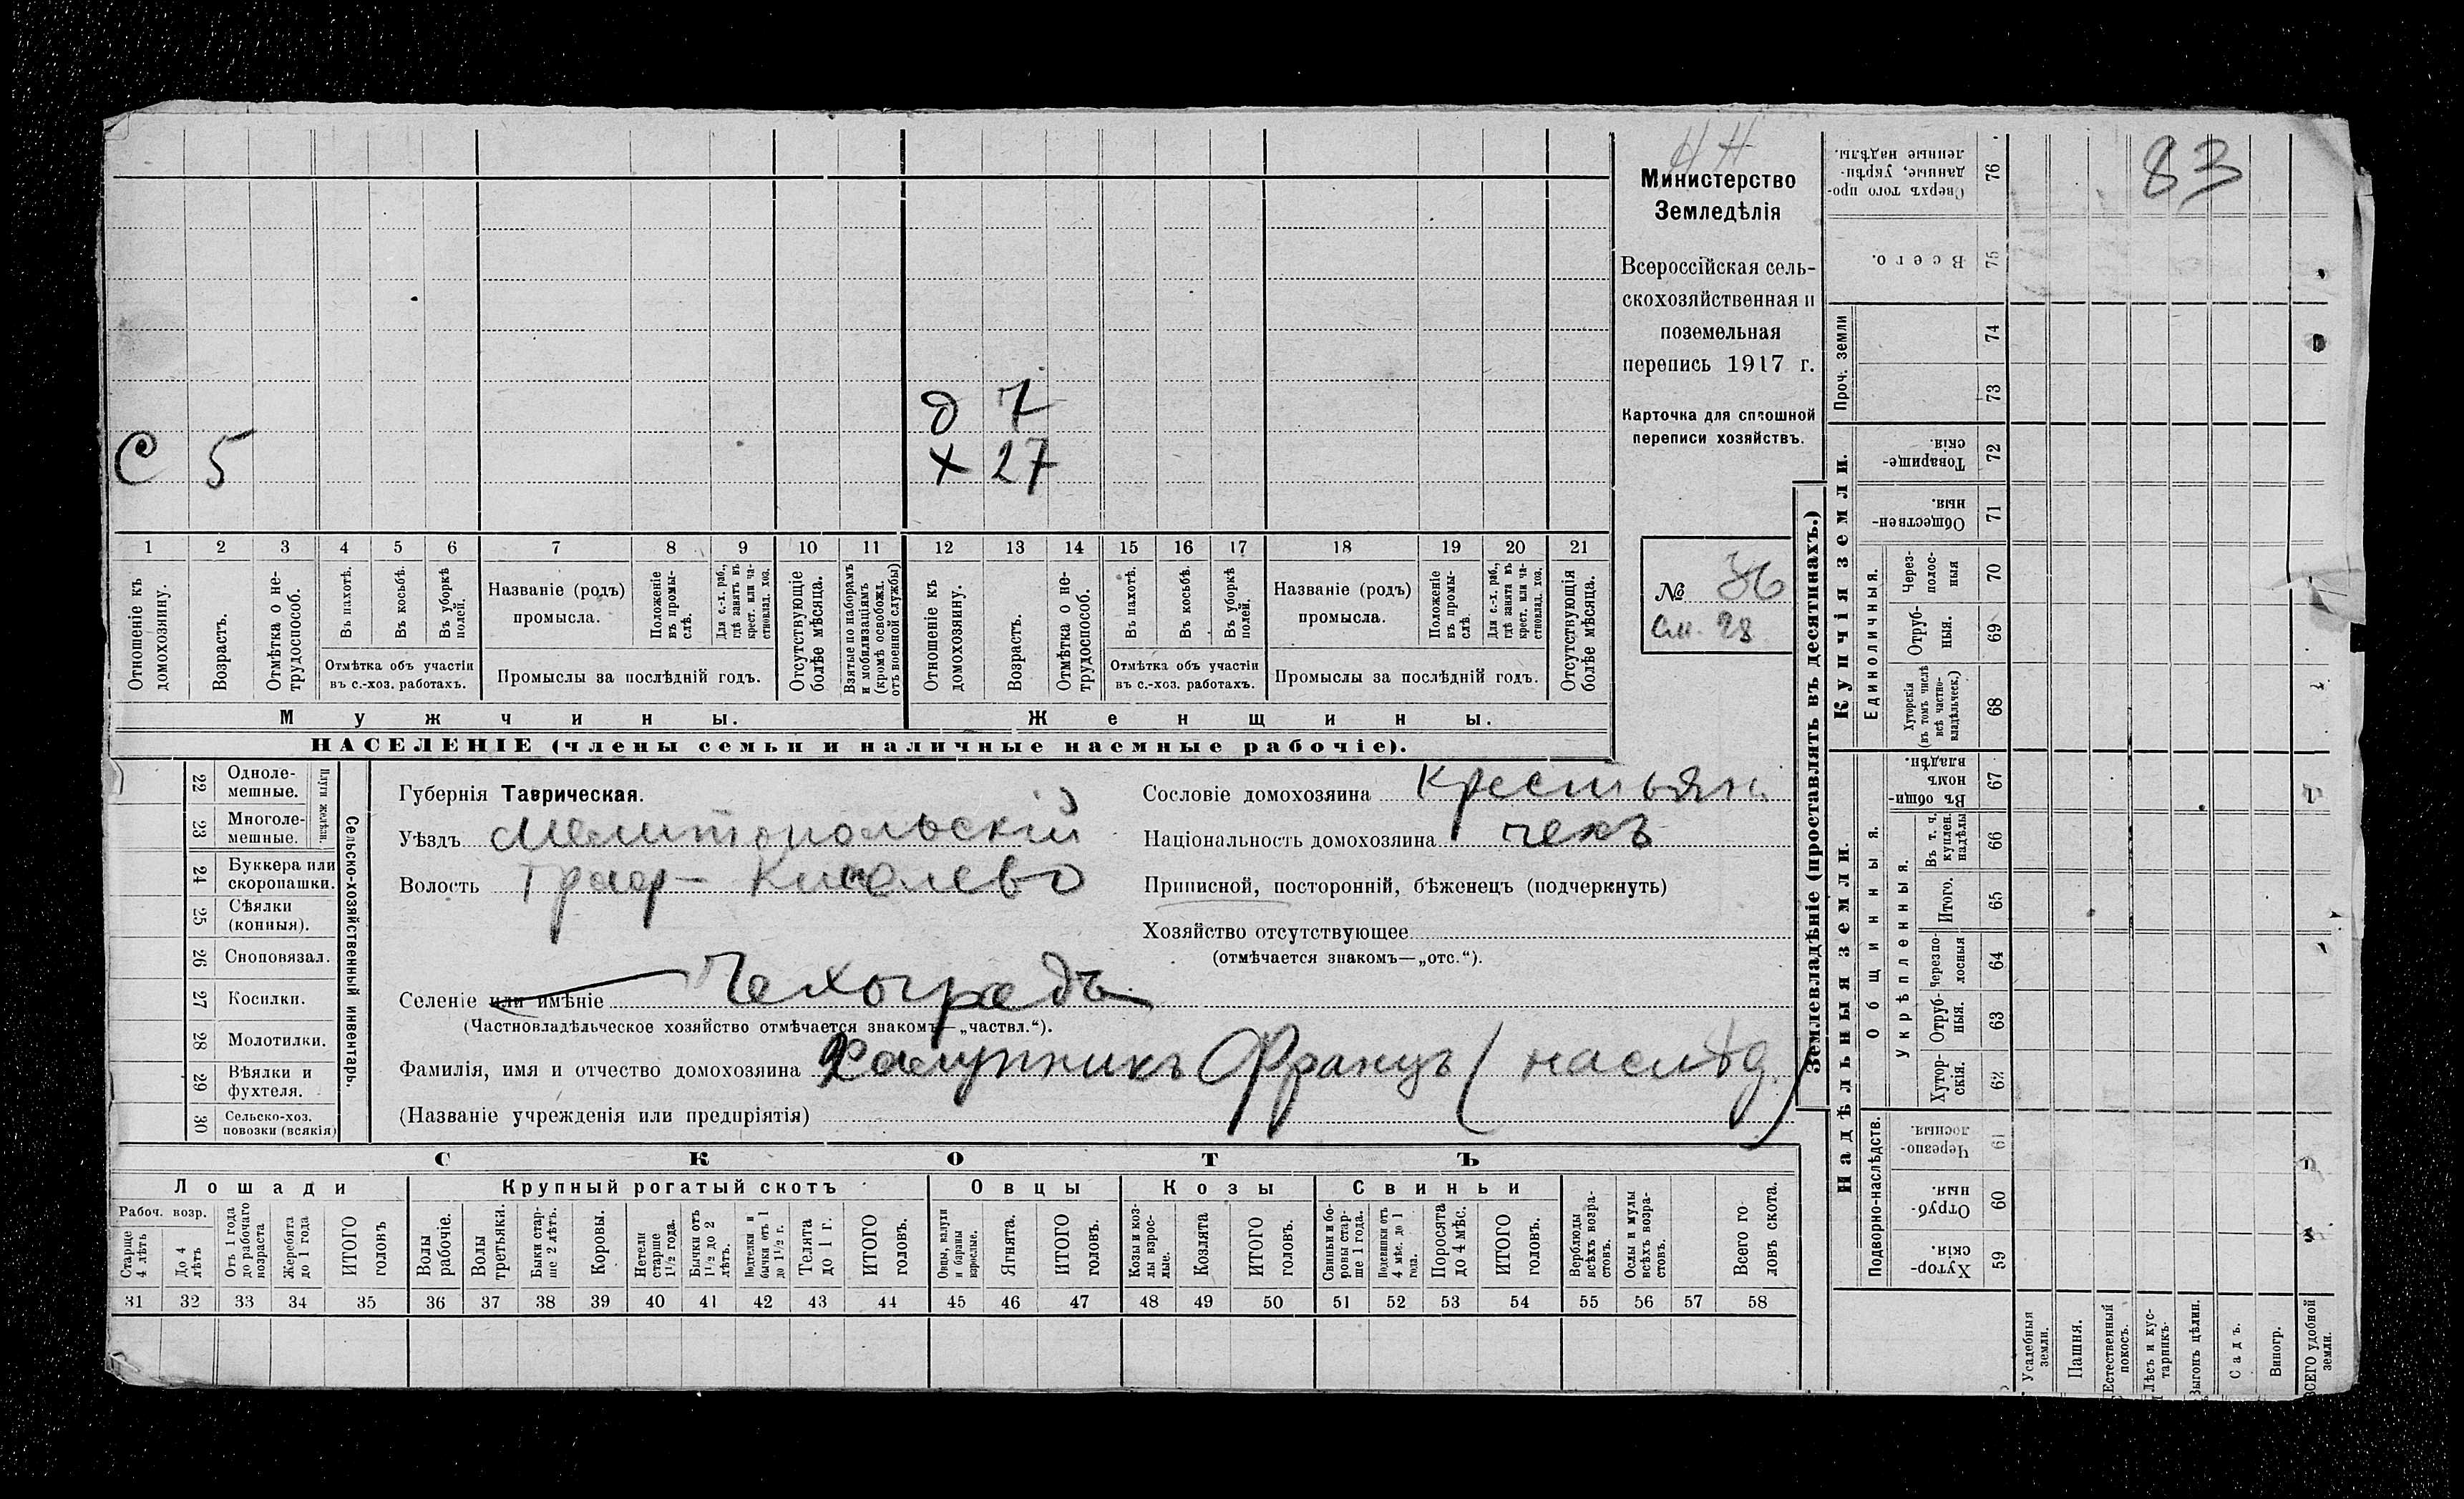 83
Министерство
Земледѣлія
Всероссійская сель-
скохозяйственная и
поземельная
перепись 1917 г.
Карточка для сплошной
переписи хозяйствъ.
№ 36
См. 28
д 7
С 5 х 27
1 2 3 4 5 6 7 8 9 10 11 12 13 14 15 16 17 18 19 20 21
Отношеніе къ домохозяину.
Возрастъ.
Отмѣтка о не-трудоспособ.
Въ пахотѣ.
Въ косьбѣ.
Въ уборкѣ полей.
Отмѣтка объ участіи
въ с.-хоз. работахъ.
Названіе (родъ)
промысла.
Положеніе въ промы-слѣ.
Для с.-х. раб., гдѣ занятъ въ крест. или ча-стновлад. хоз.
Промыслы за послѣдній годъ.
Отсутствующіе болѣе мѣсяца.
Взятые по наборамъ и мобилизаціямъ (кромѣ освобожд. отъ военной службы)
Отношеніе къ домохозяину.
Возрастъ.
Отмѣтка о не-трудоспособ.
Въ пахотѣ.
Въ косьбѣ.
Въ уборкѣ полей.
Отмѣтка объ участіи
въ с.-хоз. работахъ.
Названіе (родъ)
промысла.
Положеніе въ промы-слѣ.
Для с.-х. раб., гдѣ занятъ въ крест. или ча-стновлад. хоз.
Промыслы за послѣдній годъ.
Отсутствующія болѣе мѣсяца.
Мужчины. Женщины.
НАСЕЛЕНІЕ (члены семьи и наличные наемные рабочіе).
22 Одноле-мешные.
23 Многоле-мешные.
Плуги желѣзн.
24 Буккера или скоропашки.
25 Сѣялки (конныя).
26 Сноповязал.
27 Косилки.
28 Молотилки.
29 Вѣялки и фухтеля.
30 Сельско-хоз. повозки (всякія)
Сельско-хозяйственный инвентарь.
Губернія Таврическая.
Уѣздъ Мелитопольскій
Волость
Селеніе или имѣніе Чехоградъ
(Частновладѣльческое хозяйство отмѣчается знакомъ—„частвл.“).
Фамилія, имя и отчество домохозяина Халупникъ Францъ (наслѣд.)
(Названіе учрежденія или предпріятія)
Сословіе домохозяина крестьян.
Національность домохозяина чехъ
Приписной, посторонній, бѣженецъ (подчеркнуть)
Хозяйство отсутствующее
(отмѣчается знакомъ—„отс.“).
СКОТЪ
Лошади Крупный рогатый скотъ Овцы Козы Свиньи
Рабоч. возр.
Старше 4 лѣтъ
До 4 лѣтъ
Отъ 1 года до рабочаго возраста
Жеребята до 1 года
ИТОГО головъ
Волы рабочіе.
Волы третьяки.
Быки стар-ше 2 лѣтъ.
Коровы.
Нетели старше 1½ года.
Бычки отъ 1½ до 2 лѣтъ.
Подтелки и бычки отъ 1 до 1½ г.
Телята до 1 г.
ИТОГО головъ.
Овцы, валухи и бараны взрослые.
Ягнята.
ИТОГО головъ.
Козы и коз-лы взрос-лые.
Козлята
ИТОГО головъ.
Свиньи и бо-ровы стар-ше 1 года.
Подсвинки отъ 4 мѣс. до 1 года.
Поросята до 4 мѣс.
ИТОГО головъ.
Верблюды всѣхъ возра-стовъ.
Ослы и мулы всѣхъ возра-стовъ.
Всего го-ловъ скота.
31 32 33 34 35 36 37 38 39 40 41 42 43 44 45 46 47 48 49 50 51 52 53 54 55 56 57 58
Землевладѣніе (проставлять въ десятинахъ.)
Надѣльныя земли. Купчія земли. Проч. земли
Подворно-наслѣдств. Общинныя. Укрѣпленныя. Единоличныя.
Хутор-скія 59
Отруб-ныя. 60
Черезпо-лосныя. 61
Хутор-скія. 62
Отруб-ныя. 63
Черезпо-лосныя 64
Итого. 65
Въ т. ч. куплен. надѣлы 66
Въ общин-номъ владѣн. 67
Хуторскія (въ томъ числѣ всѣ частно-владѣльческ.) 68
Отруб-ныя. 69
Через-полос-ныя 70
Обществен-ныя. 71
Товарище-скія. 72
73
74
Всего. 75
Сверхъ того про-данные, укрѣп-ленные надѣлы. 76
Усадебныя земли.
Пашня.
Естественный покосъ.
Лѣсъ и кус-тарникъ.
Выгонъ цѣлин.
Садъ.
Виногр.
ВСЕГО удобной земли.